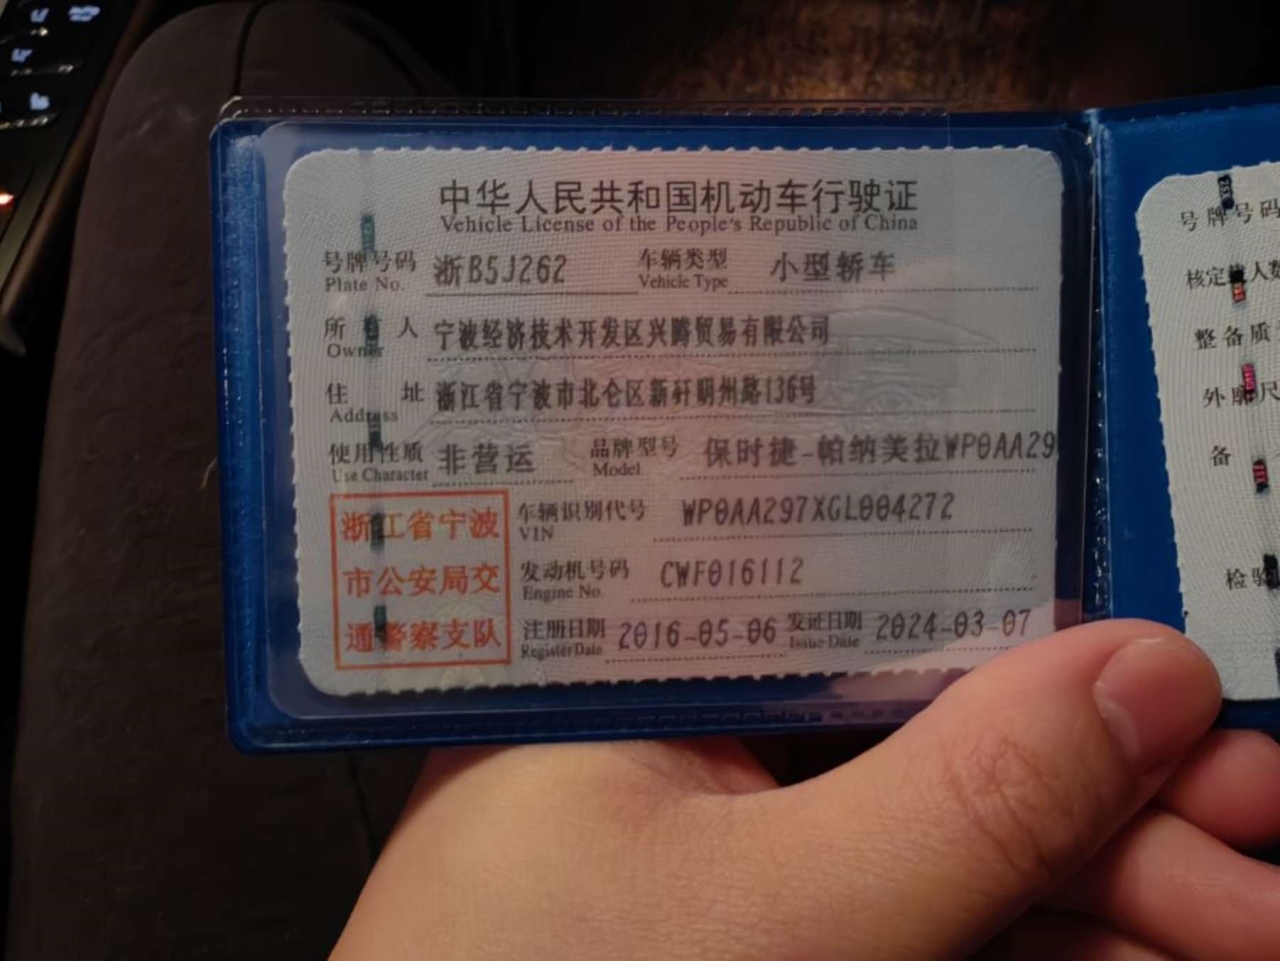 中华人民共和国机动车行驶证
Vehicle License of the People's Republic of China
号牌号码 浙B5J262 车辆类型 小型轿车
Plate No. Vehicle Type
所有人 宁波经济技术开发区兴腾贸易有限公司
Owner
住址 浙江省宁波市北仑区新矸明州路136号
Address
使用性质 非营运 品牌型号 保时捷-帕纳美拉WP0AA29
Use Character Model
浙江省宁波 车辆识别代号 WP0AA297XGL004272
VIN
市公安局交 发动机号码 CWF016112
Engine No.
通警察支队 注册日期 2016-05-06 发证日期 2024-03-07
Register Date Issue Date
号牌号码
核定载人数
整备质
外廓尺
备
检验